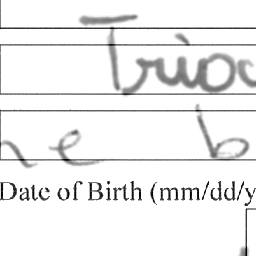 Trioc
he b
Date of Birth (mm/dd/y